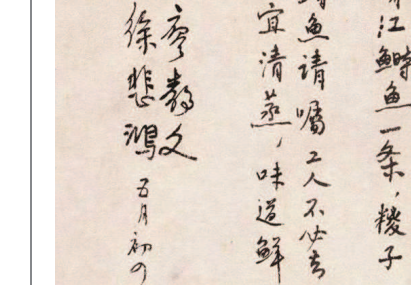 江鲥鱼一条，粽子
鱼请嘱工人不必去
宜清蒸，味道鲜
廖静文
徐悲鸿
五月初